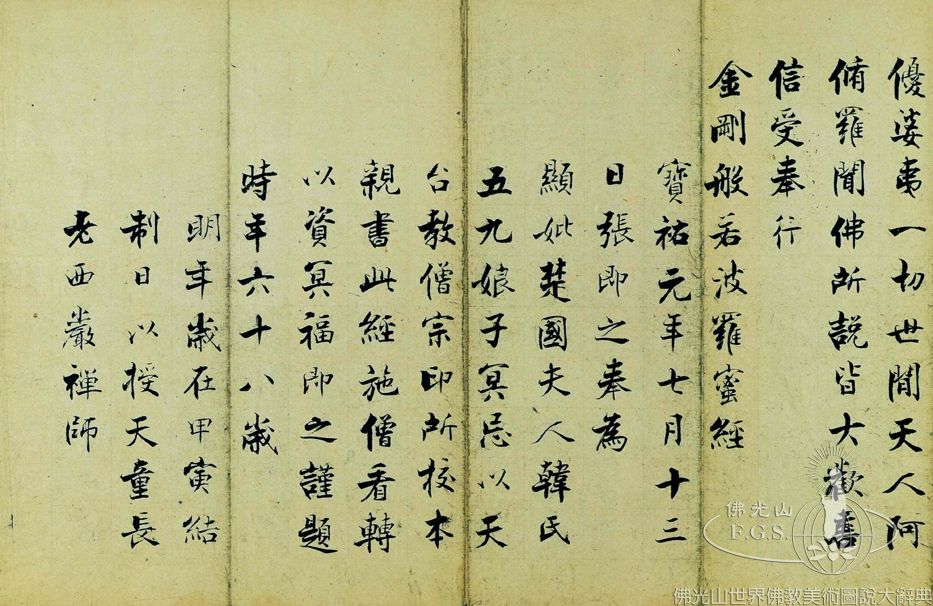 優婆夷一切世閒天人阿
脩羅聞佛所說皆大歡喜
信受奉行
金剛般若波羅蜜經
寶祐元年七月十三
日張即之奉為
顯妣楚國夫人韓氏
五九娘子冥忌以天
台教僧宗印所校本
親書此經施僧看轉
以資冥福即之謹題
時年六十八歲
明年歲在甲寅結
制日以授天童長
老西巖禪師
佛光山
F.G.S.
佛光山世界佛教美術圖說大辭典